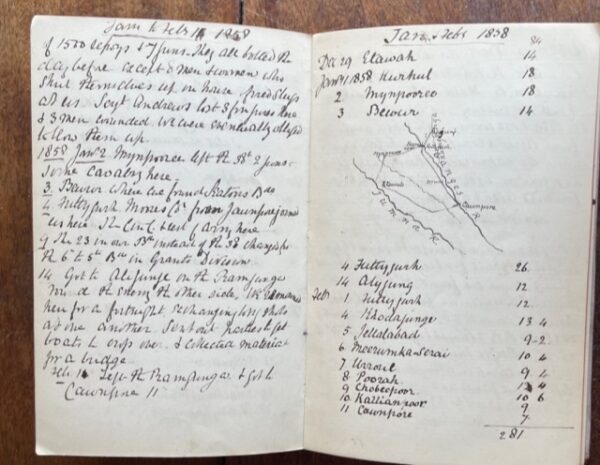 Jany to Feby 11 1858
of 1500 sepoys & 7 guns. They all bolted the
day before except 8 men & women who
shut themselves up in house & fired slugs
at us. Sergt Andrews lost 2 fingers
& 3 men wounded. We were eventually obliged
to blow them up.
1858 Jany 2. Mynpooree left the 38th 2 guns &
some Cavalry here
3. Bewur where we found Seatons Bde
4. Futtygurh
us here. The Cin C & rest of army here
9 The 23 in our Bde instead of the 38 changed fr
the 6th to 5th Bde in Grants Division
14 Got to Aligunge on the Ramgunga
found the enemy the other side. We remained
here for a fortnight, exchanging long shots
at one another. Sent out parties to get
boats to cross over & collected material
for a bridge
Feby 1 Left the Ramgunga & got to
Cawnpore 11
Jany & Feby 1858
84
Dec 29 Etawah 14
Jany 1 1858 Kurhul 18
2 Mynpooree 18
3 Bewur 14
Ganges R
Jumna R
Cawnpore
4 Futtygurh 26
14 Alygung 12
Feby 1 Futtygurh 12
4 Khodagunge 13 4
5 Jellalabad 9-2
6 Meerumka Serai 10 6
7 Urroul 9 4
8 Poorah 12 4
9 Chobeepoor 10 6
10 Kullianpoor 9
11 Cawnpore 7
281